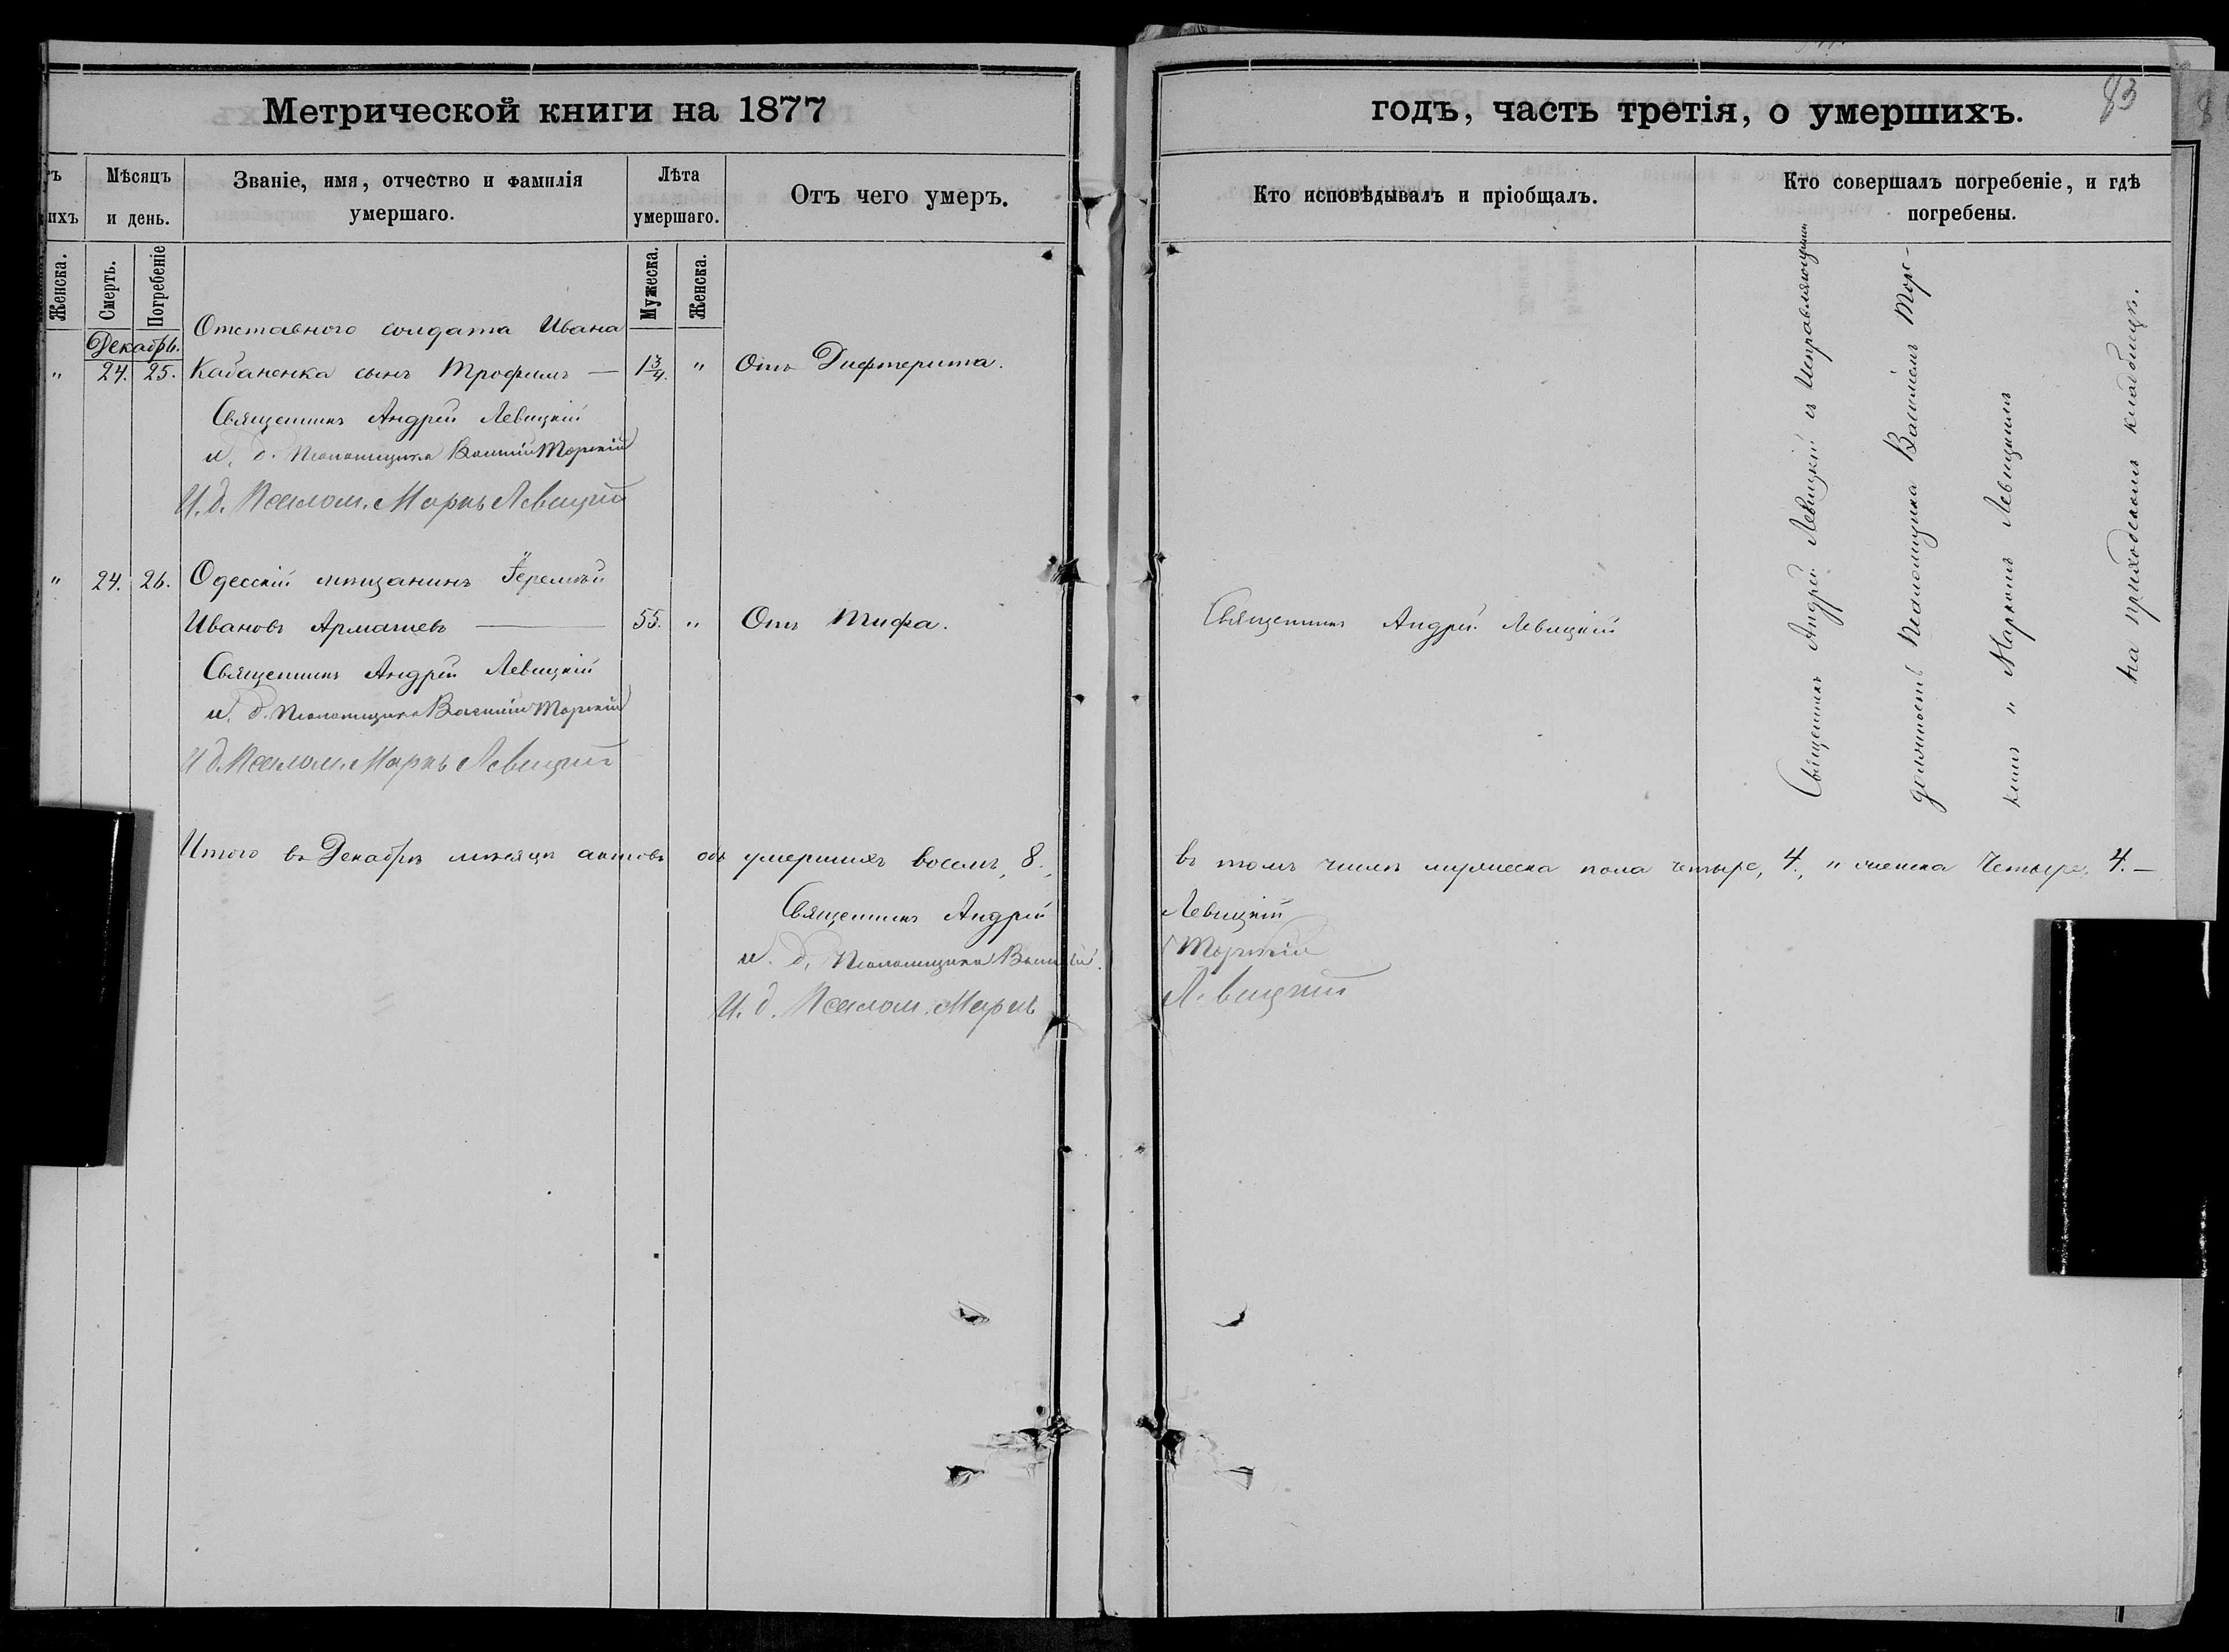 Метрической книги на 1877
годъ, часть третія, о умершихъ.
83
Мѣсяцъ и день.
Званіе, имя, отчество и фамилія умершаго.
Лѣта умершаго.
Отъ чего умеръ.
Кто исповѣдывалъ и пріобщалъ.
Кто совершалъ погребеніе, и гдѣ погребены.
Женска.
Смерть.
Погребеніе
Мужеска.
Женска.
Декабрь.
Отставного солдата Ивана
" 24. 25. Кабаненка сынъ Трофимъ — 1 3/4. " Отъ Дифтерита.
Священникъ Андрей Левицкій
и. д. Псаломщика Василій Торскій
И. д. Псалом. Маркъ Левицкій
" 24. 26. Одесскій мѣщанинъ Іеремѣй
Ивановъ Армашевъ — 55. " Отъ Тифа.
Священникъ Андрей Левицкій
Священникъ Андрей Левицкій
и. д. Псаломщика Василій Торскій
И д. Псалом. Маркъ Левицкій
Священникъ Андрей Левицкій съ Исправляющими
должность Псаломщика Василіемъ Торс-
кимъ " Маркомъ Левицкимъ
на приходскомъ кладбищѣ.
Итого въ Декабрѣ мѣсяцѣ актовъ объ умершихъ восемь, 8., въ томъ числѣ мужеска пола четыре, 4., " женска Четыре, 4. —
Священникъ Андрей Левицкій
и. д. Псаломщика Василій Торскій
И. д. Псалом. Маркъ Левицкій